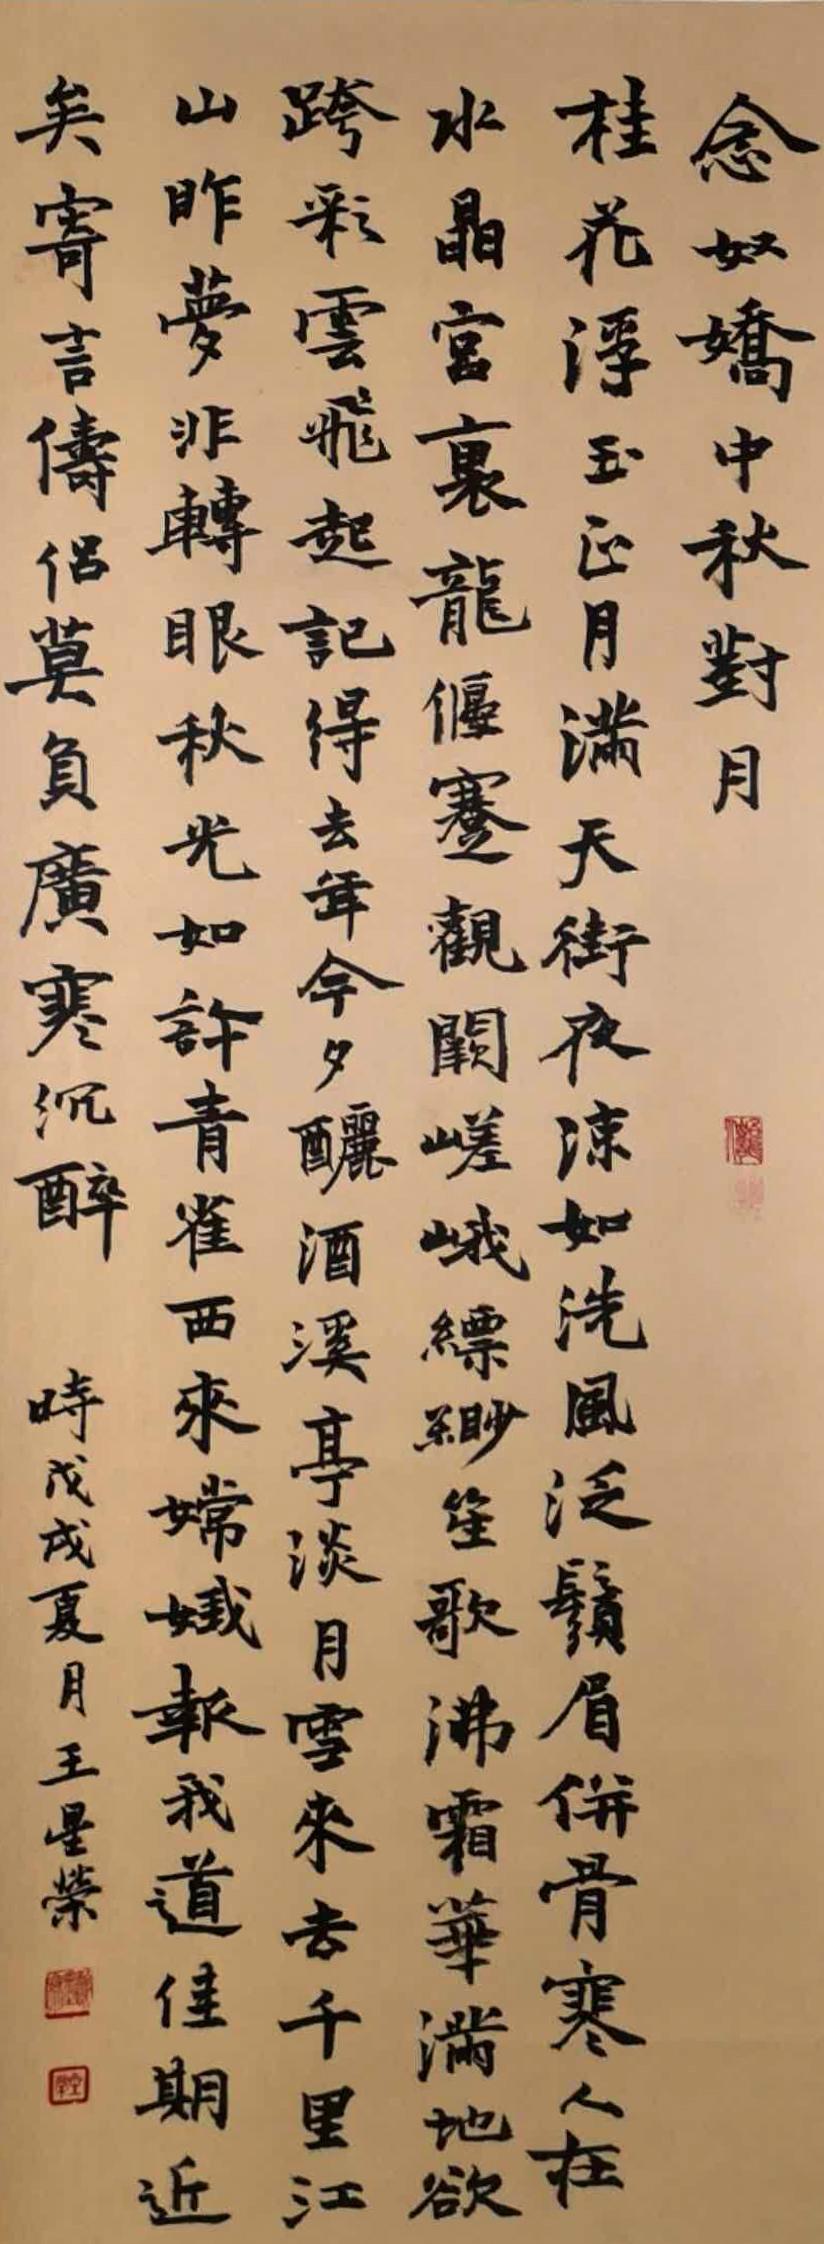 念奴嬌中秋對月
桂花浮玉正月滿天街夜涼如洗風泛鬚眉併骨寒人在
水晶宮裏龍偃蹇觀闕嵯峨縹緲笙歌沸霜華滿地欲
跨彩雲飛起記得去年今夕釃酒溪亭淡月雲來去千里江
山昨夢非轉眼秋光如許青雀西來嫦娥報我道佳期近
矣寄言儔侶莫負廣寒沉醉
時戊戌夏月王星榮